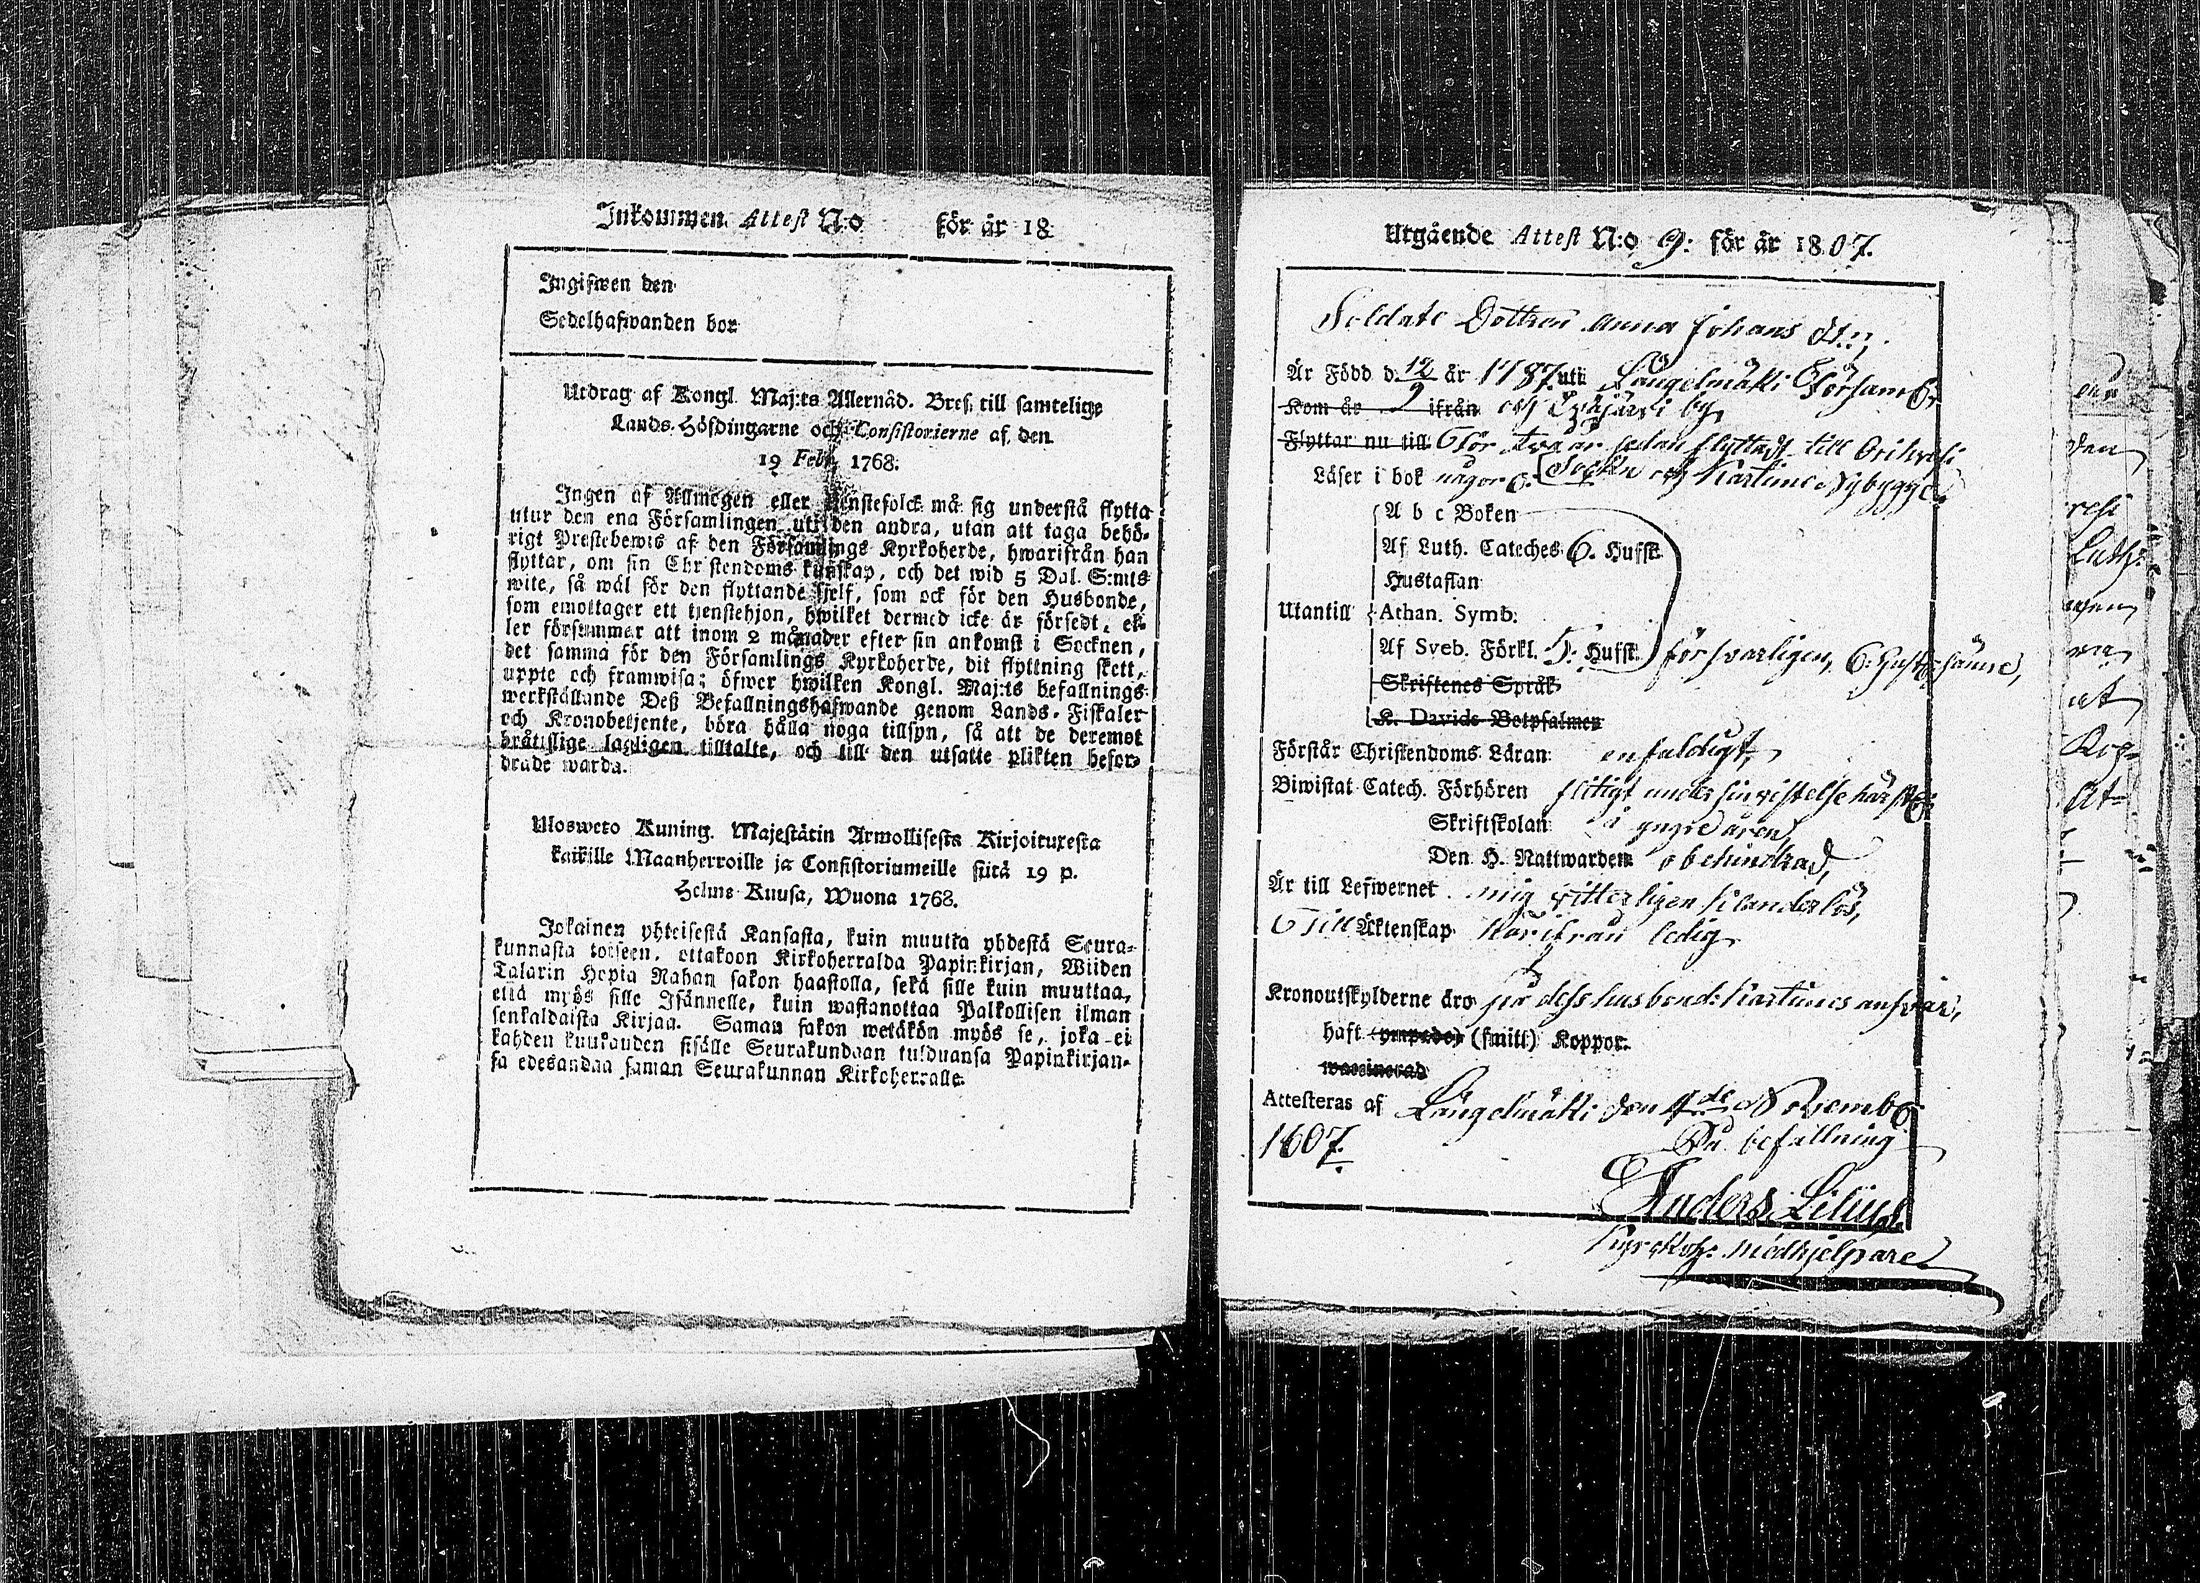 Inkommen Attest N:o för år 18
Ingifwen den
Sedelhafwanden bor
Utdrag af Kongl. Maj:ts Allernåd. Bref till samtelige
Lands-Höfdingarne och Consistorierne af den
19 Febr. 1768.
Ingen af Allmogen eller Tjenstefolck må sig understå flytta
utur den ena Församlingen uti den andra, utan att taga behö-
rigt Prestebewis af den Församlings Kyrkoherde, hwarifrån han
flyttar, om sin Christendoms kunskap, och det wid 5 Dal. S:mts
wite, så wäl för den flyttande sjelf, som ock för den Husbonde,
som emottager ett tjenstehjon, hwilket dermed icke är försedt, el-
ler försummar att inom 2 månader efter sin ankomst i Socknen,
det samma för den Församlings Kyrkoherde, dit flyttning skett,
uppte och framwisa; öfwer hwilken Kongl. Maj:ts befallnings
werkställande Deß Befallningshafwande genom Lands-Fiskaler
och Kronobetjente, böra hålla noga tillsyn, så att de deremot
bråtslige lagligen tilltalte, och till den utsatte plikten befor-
drade warda.
Ulosweto Kuning. Majestätin Armollisesta Kirjoituxesta
kaikille Maanherroille ja Consistoriumeille siitä 19 p.
Helme-Kuusa, Wuona 1768.
Jokainen yhteisestä Kansasta, kuin muutta yhdestä Seura-
kunnasta toiseen, ottakoon Kirkoherralda Papinkirjan, Wiiden
Talarin Hopia Rahan sakon haastolla, sekä sille kuin muuttaa,
että myös sille Isännelle, kuin wastanottaa Palkollisen ilman
senkaldaista Kirjaa. Saman sakon wetäkön myös se, joka ei
kahden kuukauden sisälle Seurakundaan tulduansa Papinkirjan-
sa edesandaa saman Seurakunnan Kirkoherralle.
Utgående Attest N:o 9: för år 1807.
Soldats Dottren Anna Johans dt:r,
Är Född d. 12/2 år 1787. uti Längelmäki Församl:g
Kom år ifrån och by,
Flyttar nu till För två år sedan flyttadt till Orihvesi
Läser i bok någor:s. Sockn och Nybygge.
A b c Boken
Af Luth. Cateches 6. Hufst.
Hustaflan
Utantill Athan. Symb.
Af Sveb. Förkl. 5. Hufst. försvarligen,
Skriftenes Språk
K. Davids Botpsalmer
Förstår Christendoms Läran enfaldigt,
Biwistat Catech. Förhören flitigt under sin vistelse härst:s
Skriftskolan i yngre åren,
Den H. Nattwarden obehindrad,
Är till Lefwernet mig vitterligen klanderlös,
Till Äktenskap härifrån ledig.
Kronoutskylderne äro på dess husbond: ansvar,
haft (ympade) (smitt) Koppor.
waccinerad
Attesteras af Längelmäki den 4de Novemb:r
1807.
På befallning
Anders Lilius
Kyrckoh:s medhjelpare